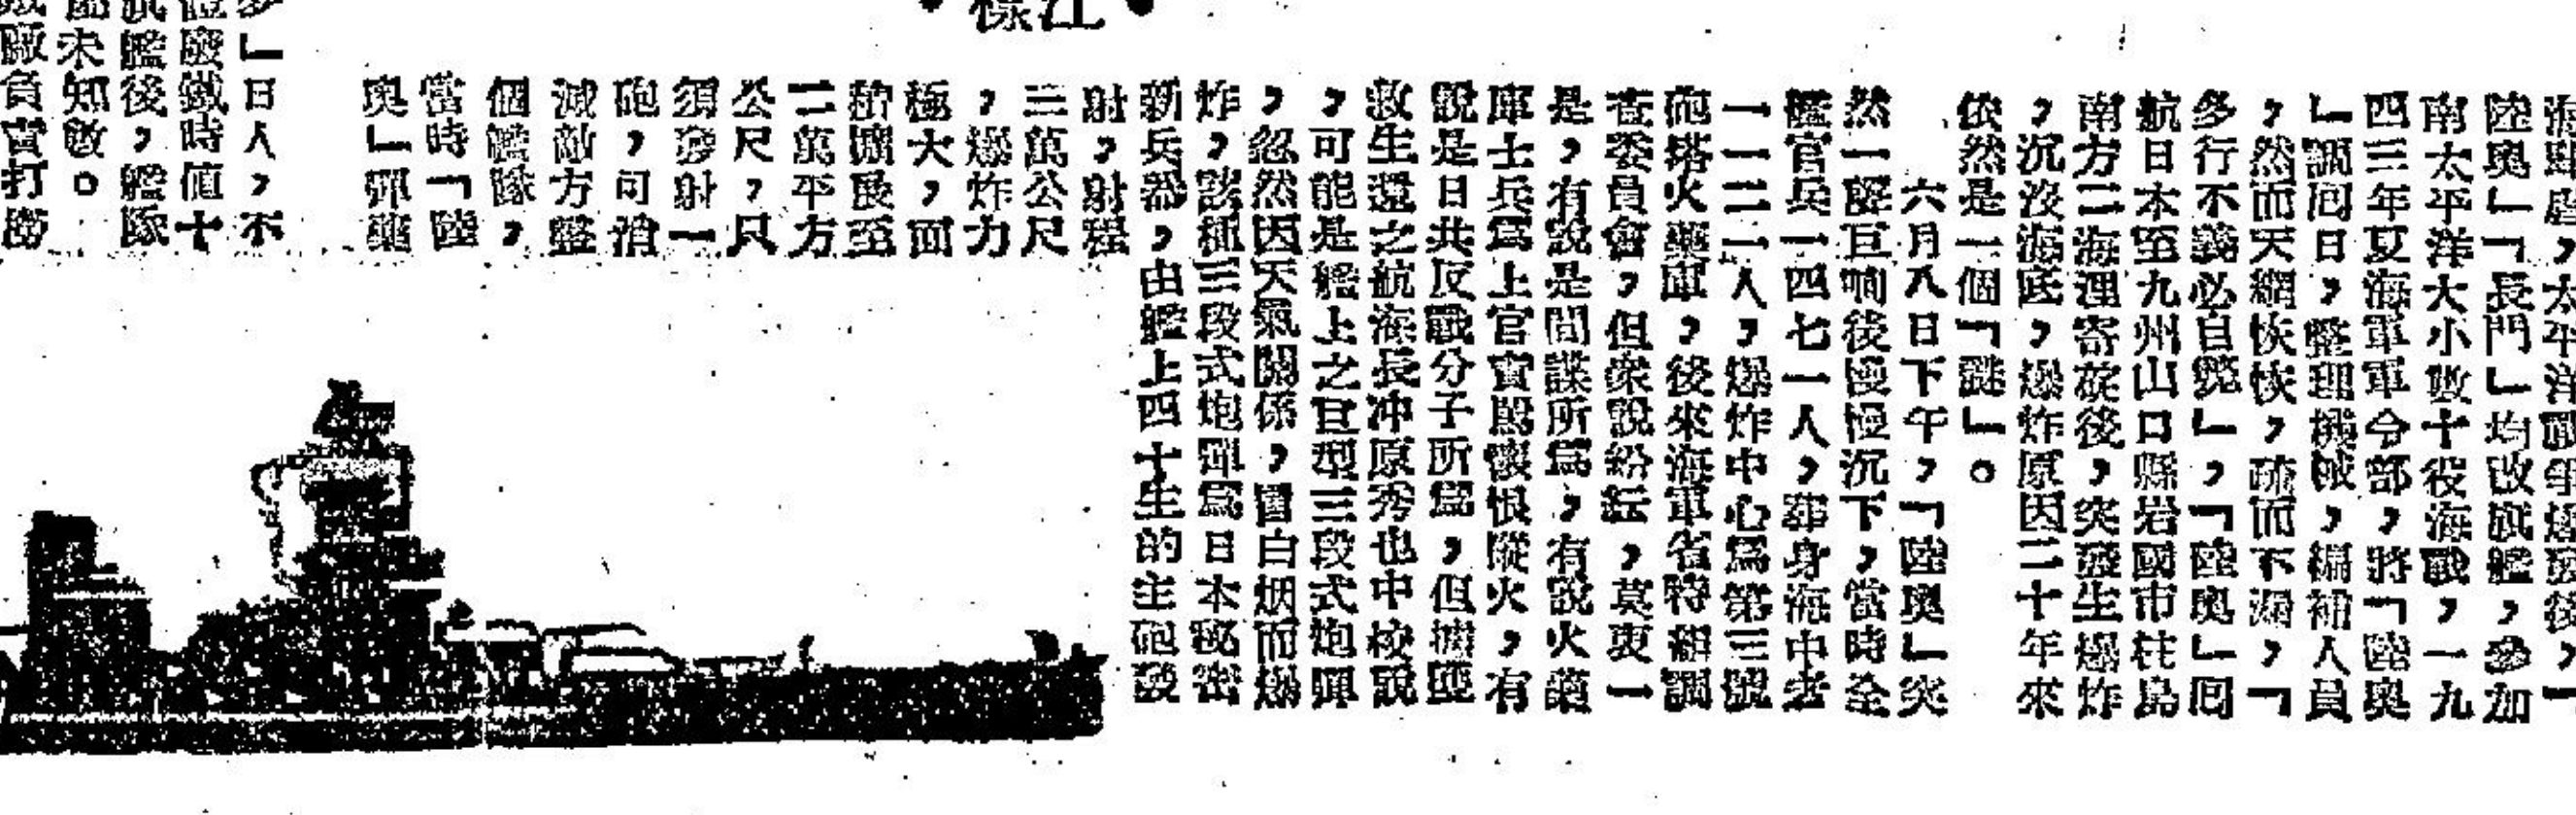 樣江
海軍，太平洋戰爭爆發後，「
陸奥」「長門」均改旗艦，參加
南太平洋大小數十役海戰，一九
四三年夏海軍軍令部，將「陸奥
」調囘日，整理機械，編補人員
，然而天網恢恢，疏而不漏，「
多行不義必自斃」，「陸奥」囘
航日本至九州山口縣岩國市柱島
南方二海浬寄碇後，突發生爆炸
，沉沒海底，爆炸原因二十年來
依然是一個「謎」。
六月八日下午，「陸奥」突
然一聲巨响後慢慢沉下，當時全
艦官兵一四七一人，葬身海中者
一一二二人，爆炸中心爲第三號
砲塔火藥庫，後來海軍省特組調
查委員會，但衆說紛紜，莫衷一
是，有說是間諜所爲，有說火藥
庫士兵爲上官責罵懷恨縱火，有
說是日共反戰分子所爲，但據
救生還之航海長冲原秀也中校說
，可能是艦上之巨型三段式炮彈
，忽然因天氣關係，冒白烟而爆
炸，該種三段式炮彈爲日本秘密
新兵器，由艦上四十生的主砲發
射，射程
三萬公尺
，爆炸力
極大，面
積擴展至
二萬平方
公尺，只
須發射一
砲，可消
滅敵方整
個艦隊，
當時「陸
奥」彈藥
」日人，不
廢鐵時値十
艦後，艦隊
未知數。
廠負責打撈